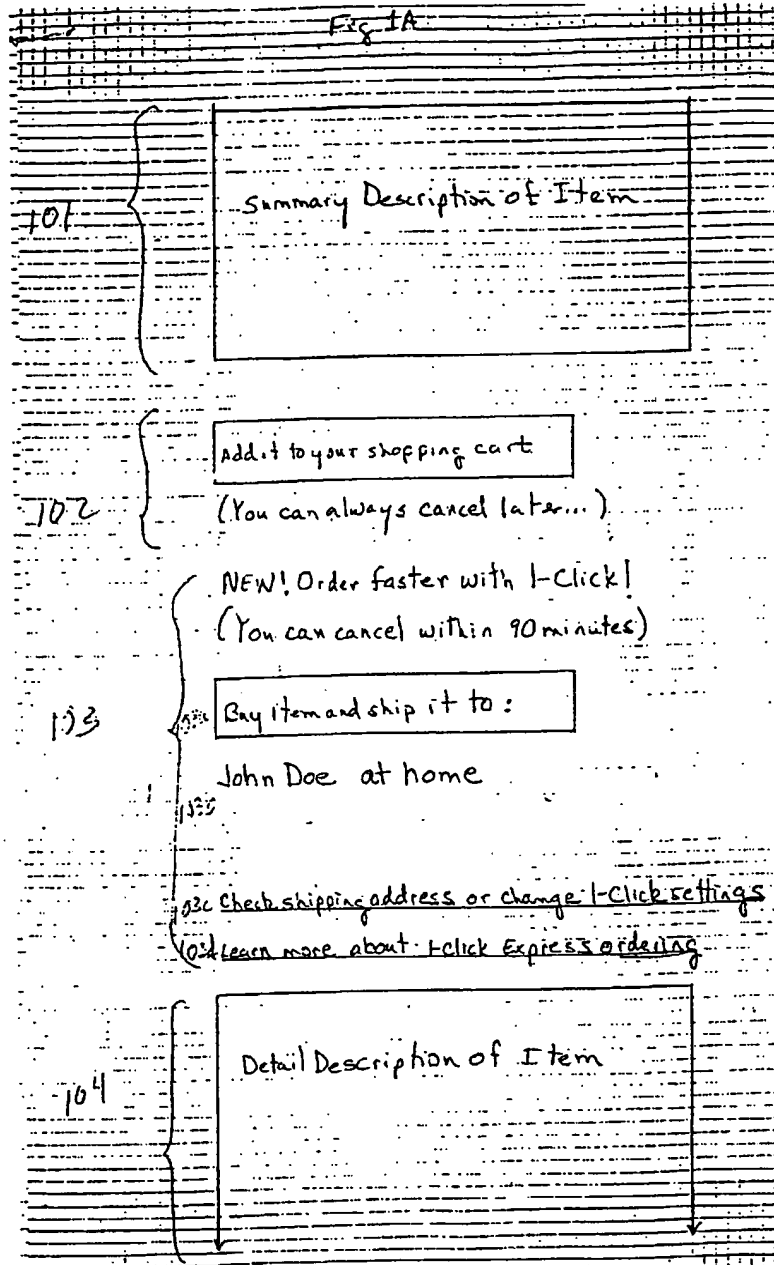 Fig 1A
101
Summary Description of Item
102
Add it to your shopping cart
(You can always cancel later...)
103
NEW! Order faster with 1-Click!
(You can cancel within 90 minutes)
Buy item and ship it to:
John Doe at home
103c Check shipping address or change 1-Click settings
103d Learn more about 1-Click Express ordering
104
Detail Description of Item